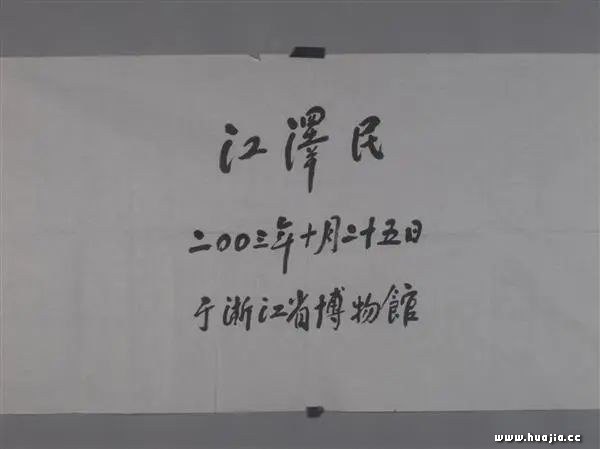 江澤民
二〇〇三年十月二十五日
于浙江省博物館
www.huajia.cc